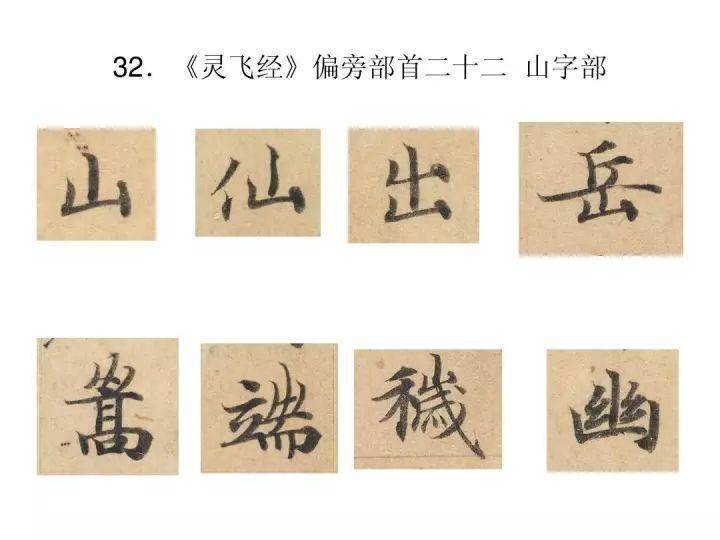 32. 《灵飞经》偏旁部首二十二 山字部
山 仙 出 岳
嵩 端 穢 幽